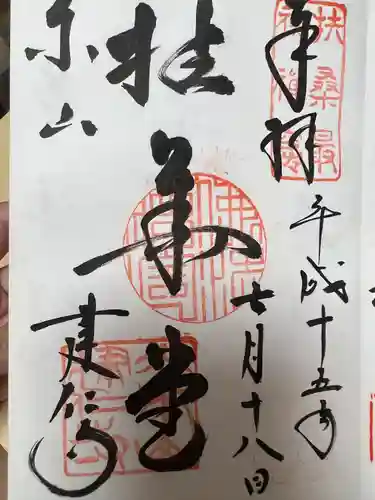 奉拝
扶桑最
初禅窟
平成十五年
七月十八日
拈華堂
東山
建仁寺